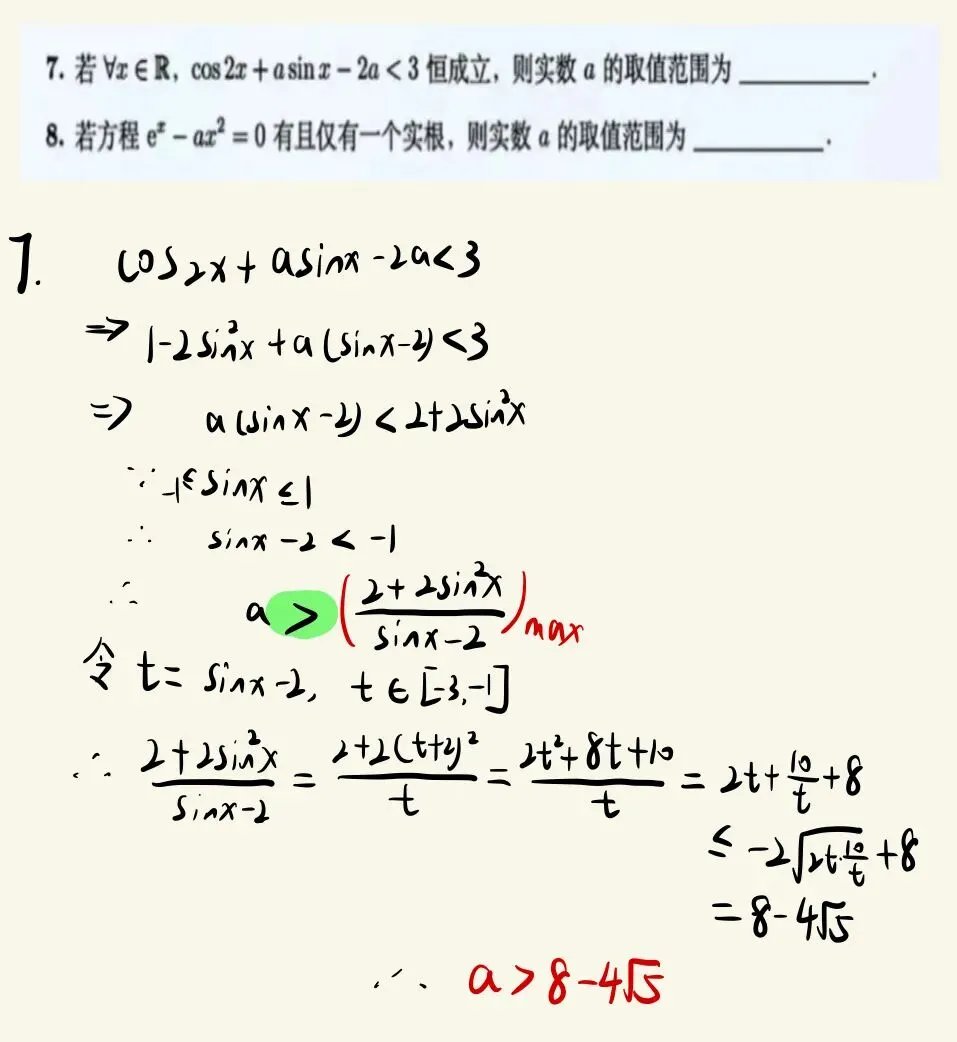 7. 若 ∀x∈ℝ, cos2x+asinx−2a<3 恒成立, 则实数 a 的取值范围为 ________.
8. 若方程 eˣ−ax²=0 有且仅有一个实根, 则实数 a 的取值范围为 ________.
7. cos2x+asinx-2a<3
=> 1-2sin²x+a(sinx-2)<3
=> a(sinx-2)<2+2sin²x
∵ -1≤sinx≤1
∴ sinx-2<-1
∴ a>((2+2sin²x)/(sinx-2))max
令 t=sinx-2, t∈[-3,-1]
∴ (2+2sin²x)/(sinx-2) = (2+2(t+2)²)/t = (2t²+8t+10)/t = 2t+10/t+8
≤ -2√(2t·10/t)+8
= 8-4√5
∴ a>8-4√5